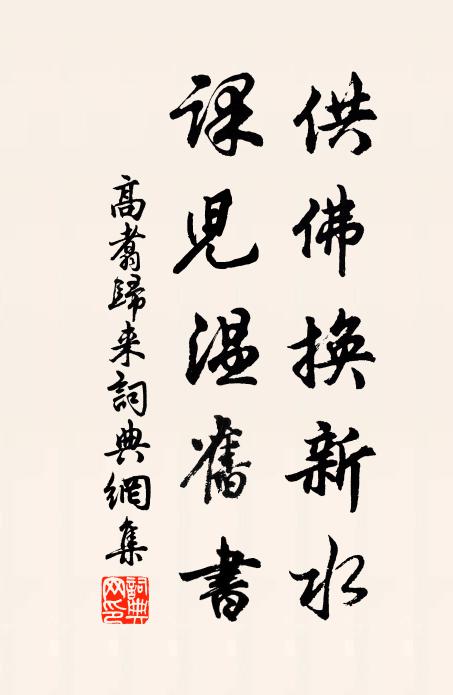 供佛換新水
課兒温舊書
高翥歸来詞典網集
詞典網印